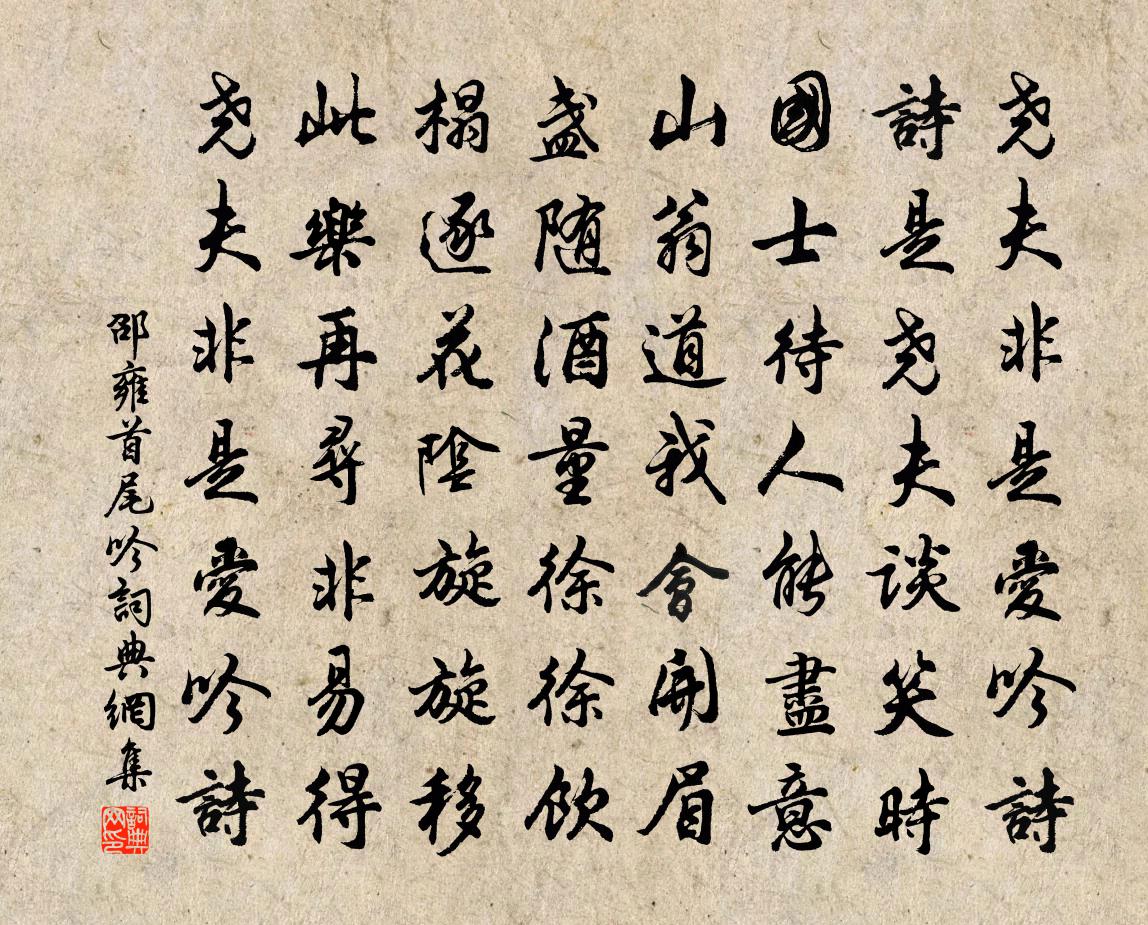 尧夫非是愛吟詩
詩是尧夫談笑時
國士待人能盡意
山翁道我會開眉
盏随酒量徐徐飲
榻逐花陰旋旋移
此樂再尋非易得
尧夫非是愛吟詩
邵雍首尾吟詞典網集
詞典
网印